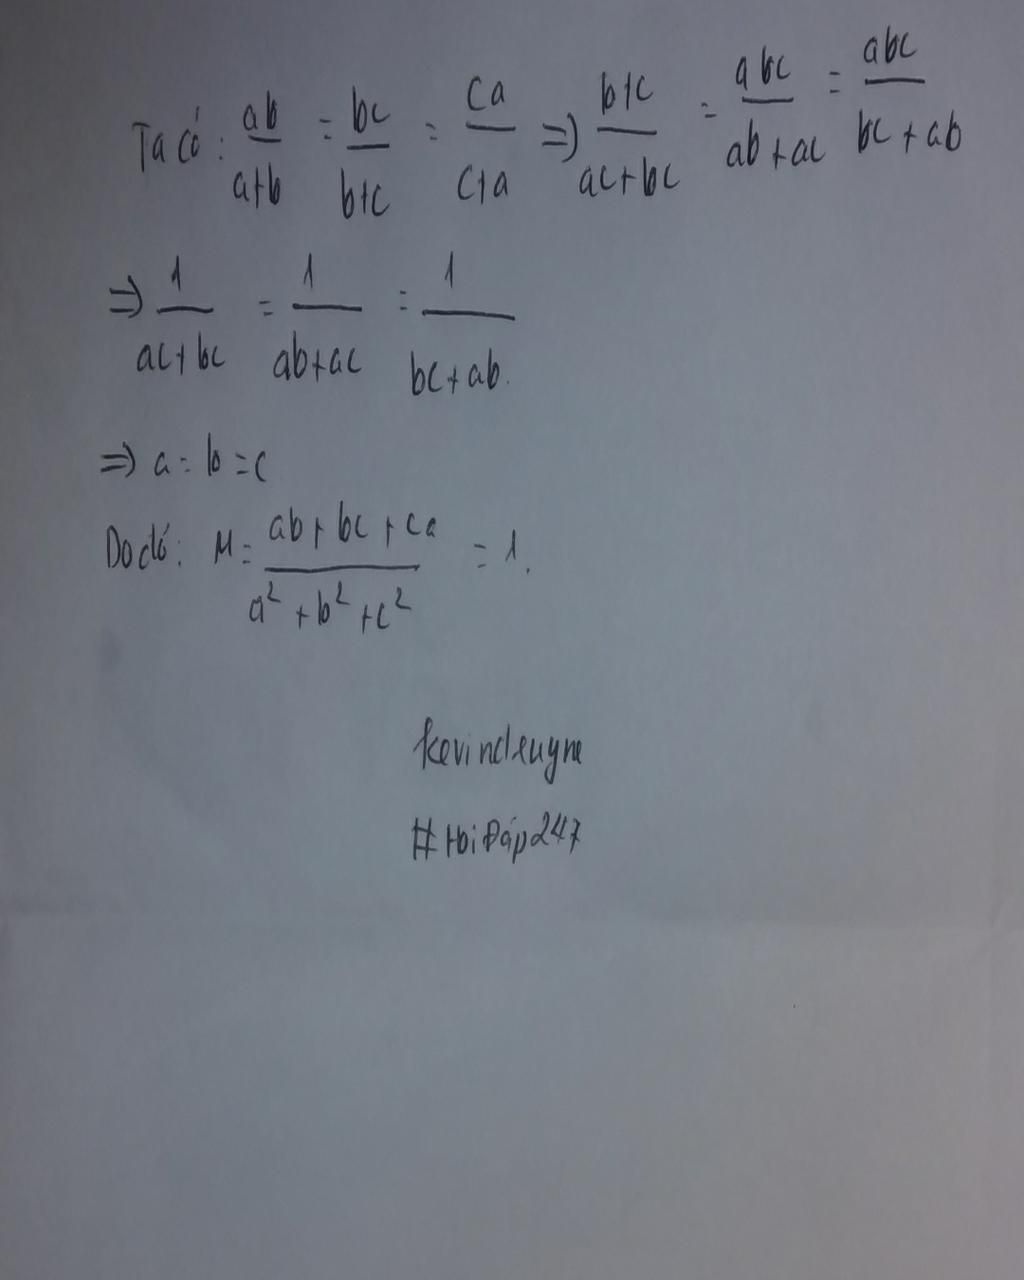 Ta có: ab/a+b = bc/b+c = ca/c+a => b+c/ac+bc = abc/ab+ac = abc/bc+ab
=> 1/ac+bc = 1/ab+ac = 1/bc+ab.
=> a = b = c
Do đó: M = ab+bc+ca/a²+b²+c² = 1.
#HỏiĐáp247